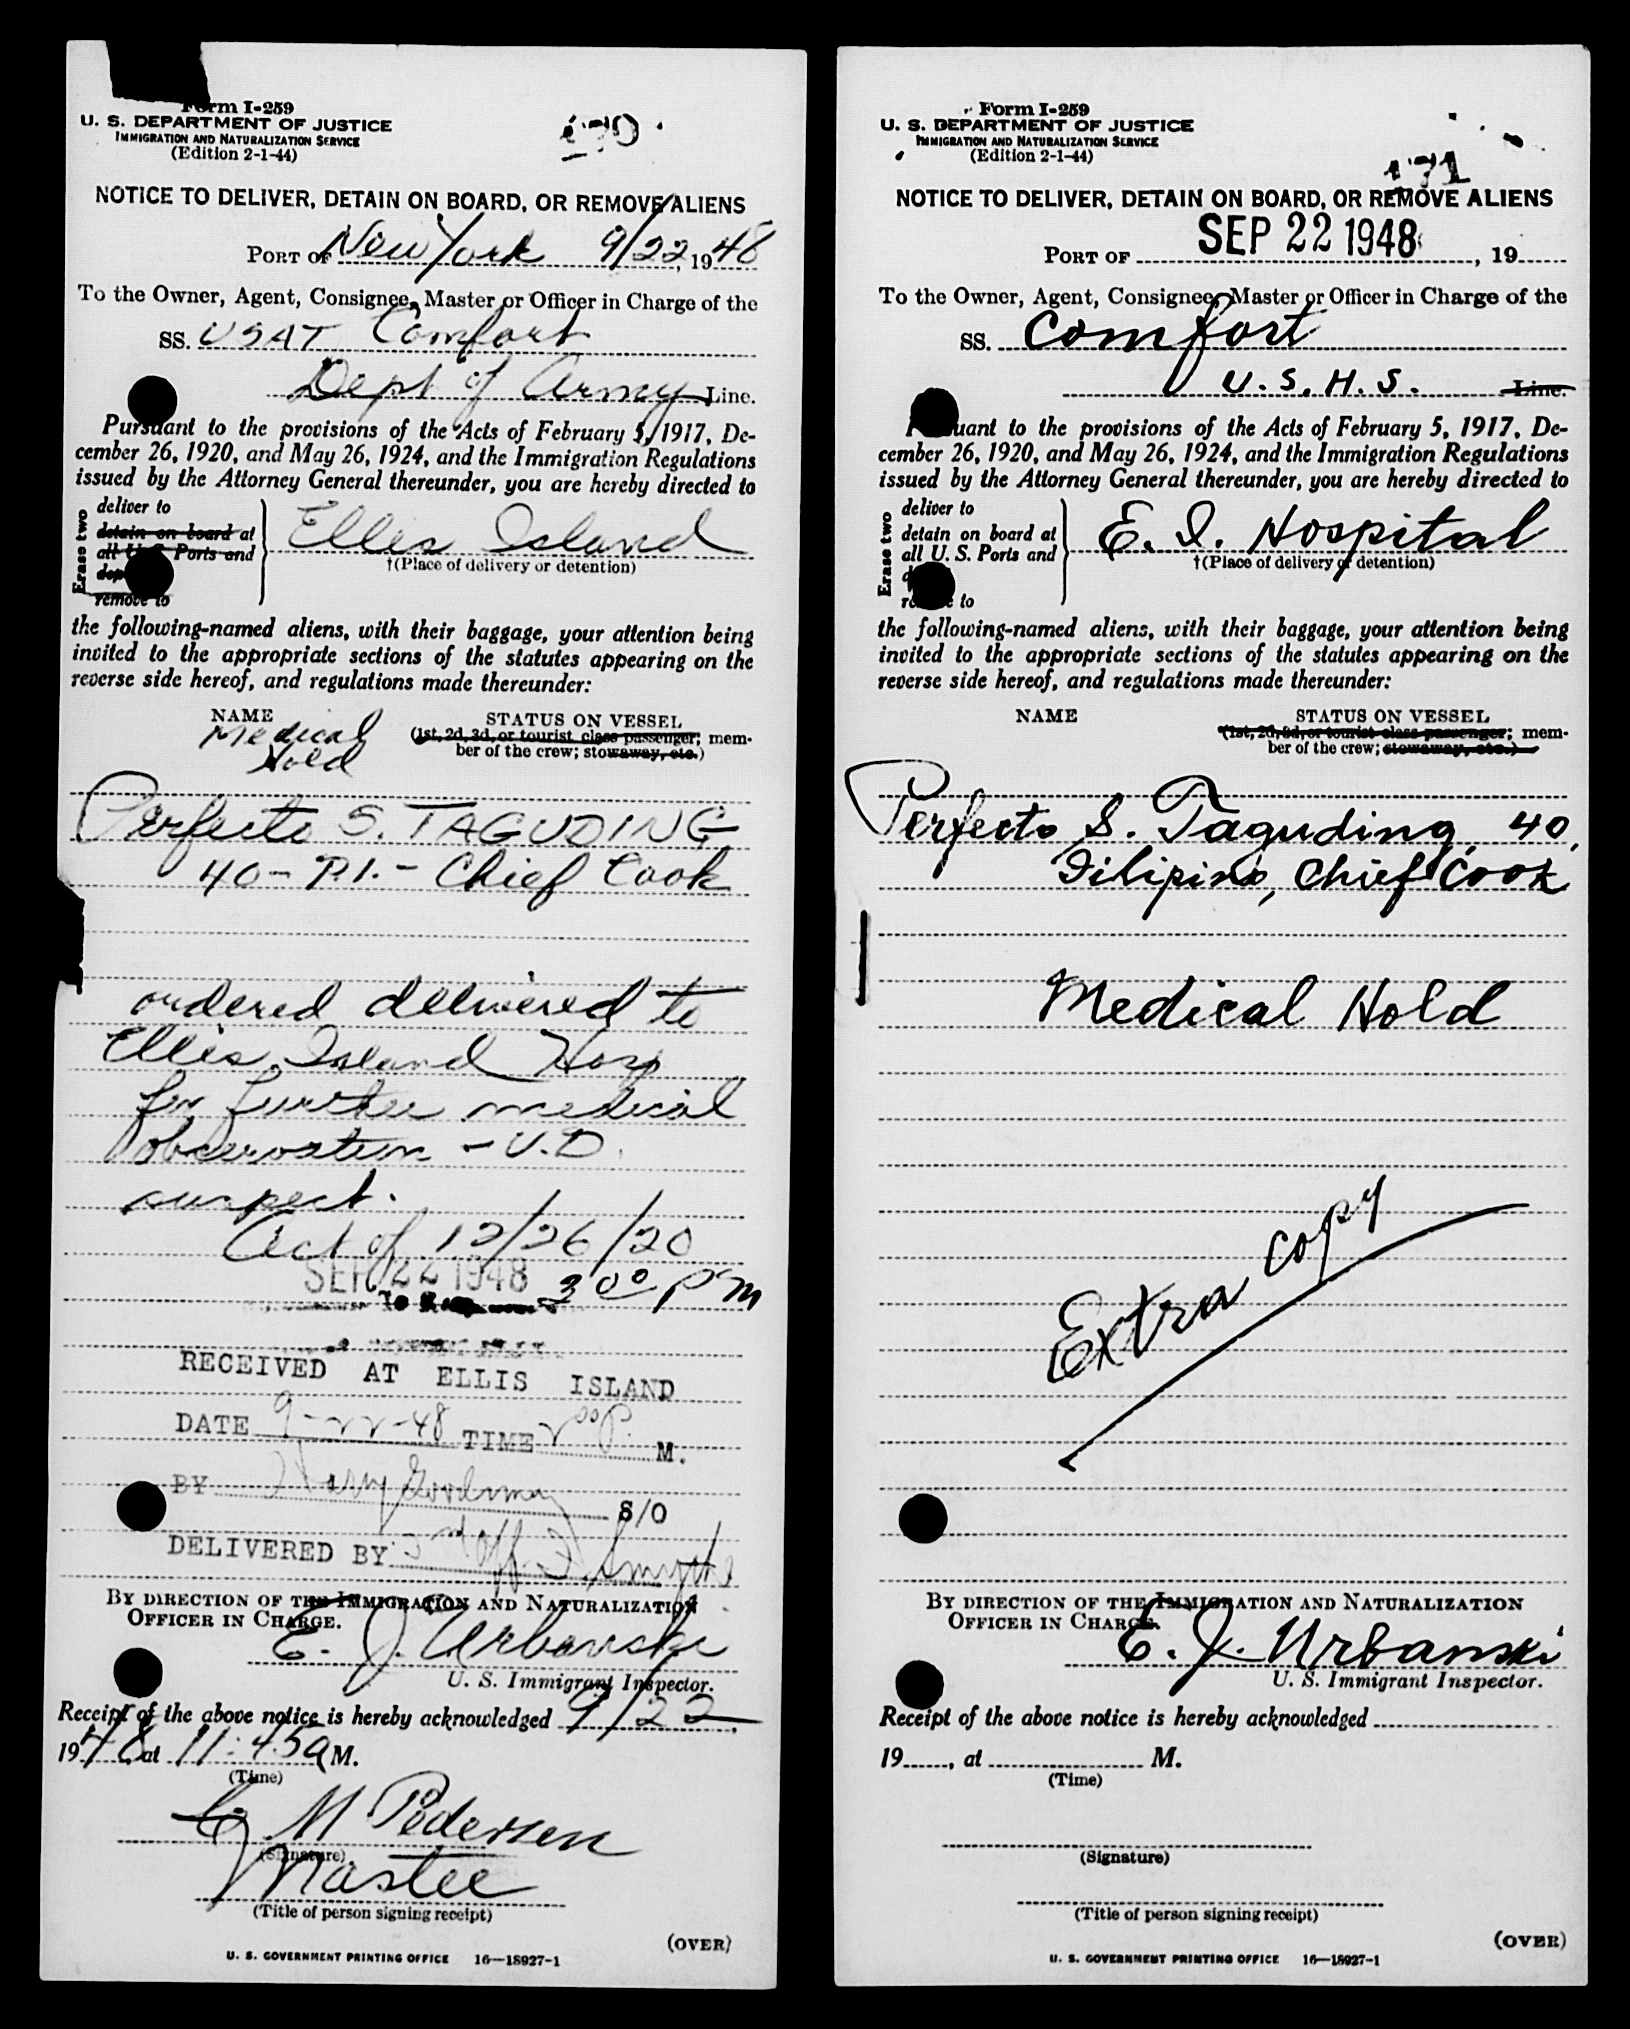 Form I-259
U. S. DEPARTMENT OF JUSTICE
IMMIGRATION AND NATURALIZATION SERVICE
(Edition 2-1-44)
170
NOTICE TO DELIVER, DETAIN ON BOARD, OR REMOVE ALIENS
PORT OF New York 9/22, 1948
To the Owner, Agent, Consignee, Master or Officer in Charge of the
SS. USAT Comfort
Dept of Army Line.
Pursuant to the provisions of the Acts of February 5, 1917, De-
cember 26, 1920, and May 26, 1924, and the Immigration Regulations
issued by the Attorney General thereunder, you are hereby directed to
Erase two
deliver to
detain on board at
all U. S. Ports and
remove to
Ellis Island
†(Place of delivery or detention)
the following-named aliens, with their baggage, your attention being
invited to the appropriate sections of the statutes appearing on the
reverse side hereof, and regulations made thereunder:
NAME
Medical
Hold
STATUS ON VESSEL
(1st, 2d, 3d, or tourist class passenger; mem-
ber of the crew; stowaway, etc.)
Perfecto S. TAGUDING
40 - P.I. - Chief Cook
ordered delivered to
Ellis Island Hosp
for further medical
observation - V.D.
suspect.
Act of 12/26/20
SEP 22 1948 3 00 PM
RECEIVED AT ELLIS ISLAND
DATE 9-22-48 TIME 2 00 P. M.
BY Harry S/O
DELIVERED BY Off.
BY DIRECTION OF THE IMMIGRATION AND NATURALIZATION
OFFICER IN CHARGE.
E. J. Urbanski
U. S. Immigrant Inspector.
Receipt of the above notice is hereby acknowledged 9/22,
1948 at 11:45 a M.
(Time)
M Pedersen
(Signature)
Master
(Title of person signing receipt)
(OVER)
U. S. GOVERNMENT PRINTING OFFICE 16—18927-1
Form I-259
U. S. DEPARTMENT OF JUSTICE
IMMIGRATION AND NATURALIZATION SERVICE
(Edition 2-1-44)
171
NOTICE TO DELIVER, DETAIN ON BOARD, OR REMOVE ALIENS
PORT OF SEP 22 1948, 19
To the Owner, Agent, Consignee, Master or Officer in Charge of the
SS. Comfort
U.S.H.S. Line.
Pursuant to the provisions of the Acts of February 5, 1917, De-
cember 26, 1920, and May 26, 1924, and the Immigration Regulations
issued by the Attorney General thereunder, you are hereby directed to
Erase two
deliver to
detain on board at
all U. S. Ports and
remove to
E. I. Hospital
†(Place of delivery or detention)
the following-named aliens, with their baggage, your attention being
invited to the appropriate sections of the statutes appearing on the
reverse side hereof, and regulations made thereunder:
NAME
STATUS ON VESSEL
(1st, 2d, 3d, or tourist class passenger; mem-
ber of the crew; stowaway, etc.)
Perfecto S. Taguding, 40,
Filipino, Chief Cook
Medical Hold
Extra copy
BY DIRECTION OF THE IMMIGRATION AND NATURALIZATION
OFFICER IN CHARGE.
E. J. Urbanski
U. S. Immigrant Inspector.
Receipt of the above notice is hereby acknowledged
19, at M.
(Time)
(Signature)
(Title of person signing receipt)
(OVER)
U. S. GOVERNMENT PRINTING OFFICE 16—18927-1